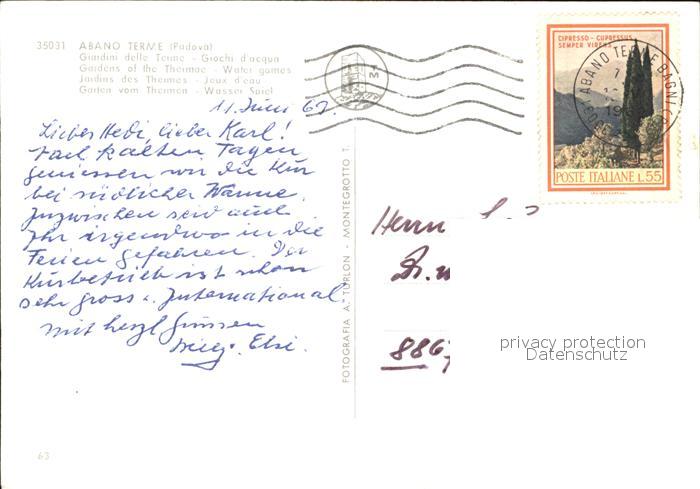 35031 ABANO TERME (Padova)
Giardini delle Terme - Giochi d'acqua
Gardens of the Thermae - Water games
Jardins des Thermes - Jeux d'eau
Garten vom Thermen - Wasser Spiel
11. Juni 67.
Lieber Hedi, lieber Karl!
Nach kalten Tagen
geniessen wir die Kur
bei südlicher Wärme.
Inzwischen seid auch
Ihr irgendwo in die
Ferien gefahren. Der
Kurbetrieb ist schon
sehr gross u. International
mit herzl Grüssen
Elsi.
63
FOTOGRAFIA A. TURLON - MONTEGROTTO T.
TM
CIPRESSO - CUPRESSUS
SEMPER VIRENS
POSTE ITALIANE L.55
ABANO TERME BAGNI
Herrn
Dr.
886
privacy protection
Datenschutz